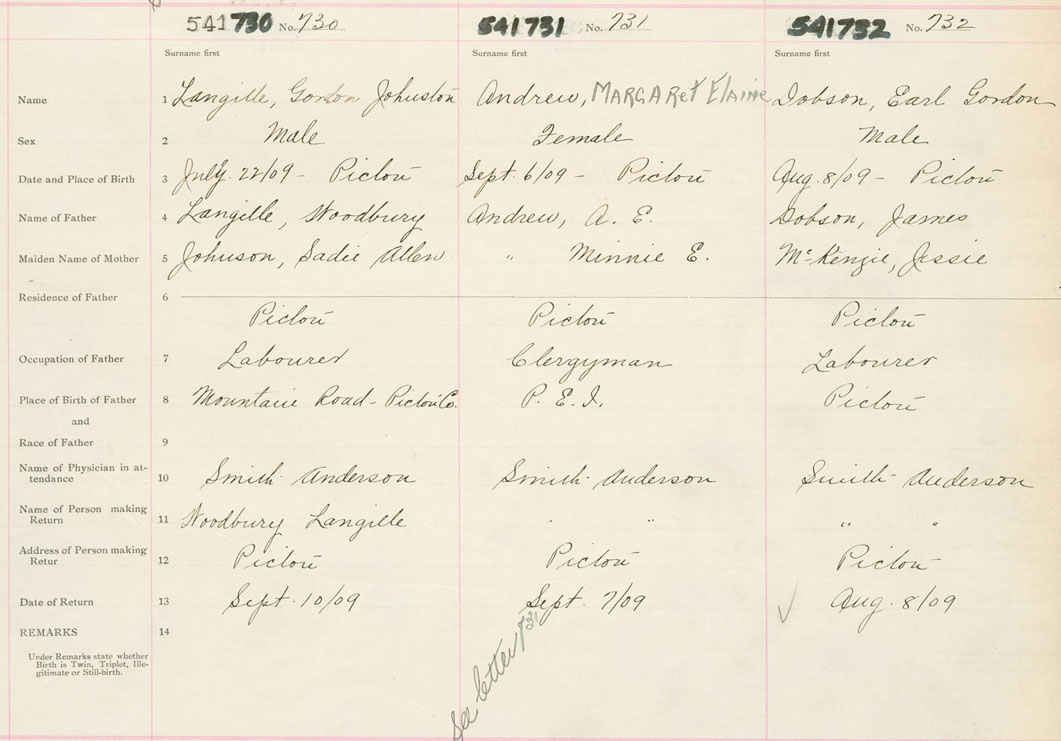 541730 No. 730 541731 No. 731 541732 No. 732
Surname first Surname first Surname first
Name 1 Langille, Gordon Johnston Andrew, MARGAReT ElAINe Dobson, Earl Gordon
Sex 2 Male Female Male
Date and Place of Birth 3 July. 22/09 - Pictou Sept. 6/09 - Pictou Aug. 8/09 - Pictou
Name of Father 4 Langille, Woodbury Andrew, A. E. Dobson, James
Maiden Name of Mother 5 Johnson, Sadie Allen " Minnie E. McKenzie, Jessie
Residence of Father 6
Pictou Pictou Pictou
Occupation of Father 7 Labourer Clergyman Labourer
Place of Birth of Father 8 Mountain Road - Pictou Co. P. E. I. Pictou
and
Race of Father 9
Name of Physician in at-
tendance 10 Smith Anderson Smith Anderson Smith Anderson
Name of Person making
Return 11 Woodbury Langille " " " "
Address of Person making
Retur 12 Pictou Pictou Pictou
Date of Return 13 Sept. 10/09 Sept. 7/09 Aug. 8/09
REMARKS 14
Under Remarks state whether
Birth is Twin, Triplet, Ille-
gitimate or Still-birth.
See letter 731